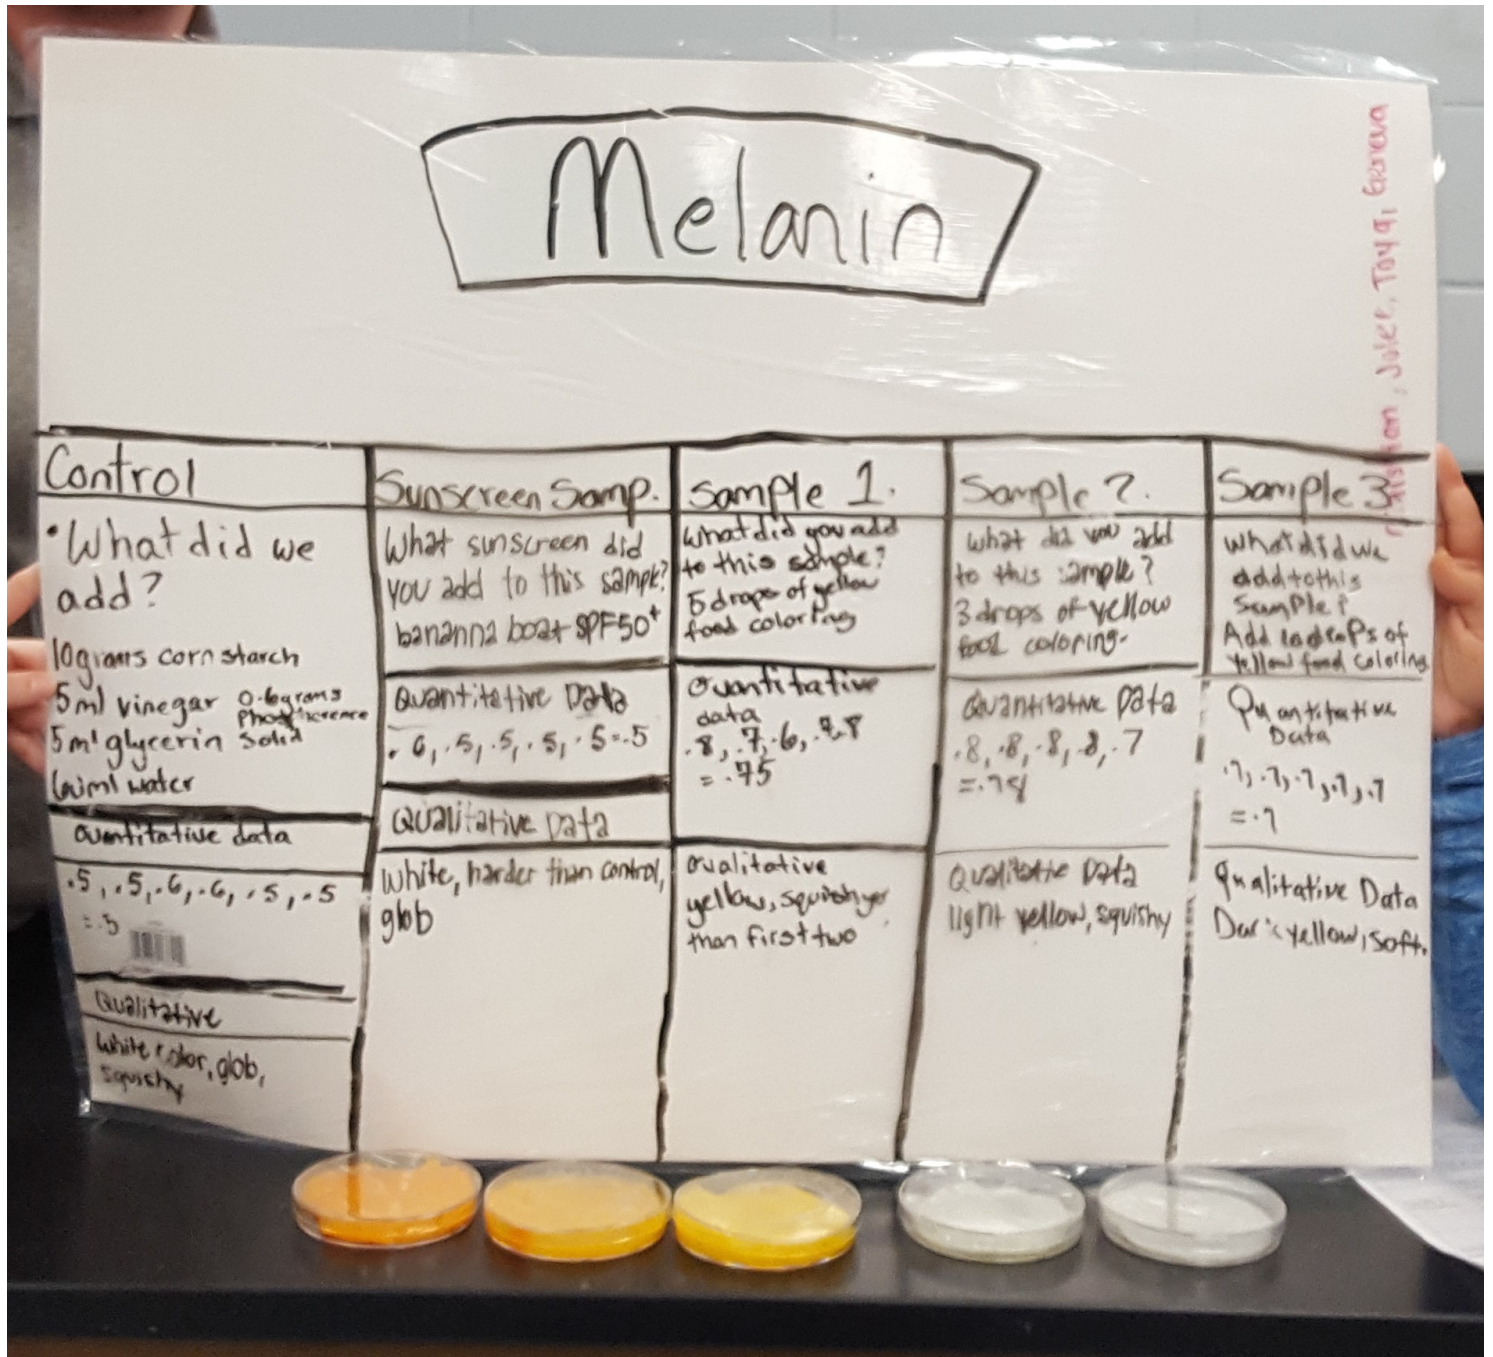 Melanin
Jolee, Taya, Geneva
Control
• What did we
add?
10 grams corn starch
5 ml vinegar 0.6 grams
5 ml glycerin solid
water
Quantitative data
.5, .5, .6, .6, .5, .5
= .5
Qualitative
White color, glob,
squishy
Sunscreen Samp.
What sunscreen did
you add to this sample?
bananna boat SPF50+
Quantitative Data
.6, .5, .5, .5, .5 = .5
Qualitative Data
White, harder than control,
glob
Sample 1.
What did you add
to this sample?
5 drops of yellow
food coloring
Quantitative
data
.8, .7, .6, .8
= .75
Qualitative
yellow, squishyer
than first two
Sample 2.
What did you add
to this sample?
3 drops of yellow
food coloring.
Quantitative Data
.8, .8, .8, .8, .7
= .78
Qualitative Data
light yellow, squishy
Sample 3
What did we
add to this
sample?
Add drops of
yellow food coloring
Quantitative
Data
.7, .7, .7, .7, .7
= .7
Qualitative Data
Dark yellow, soft.